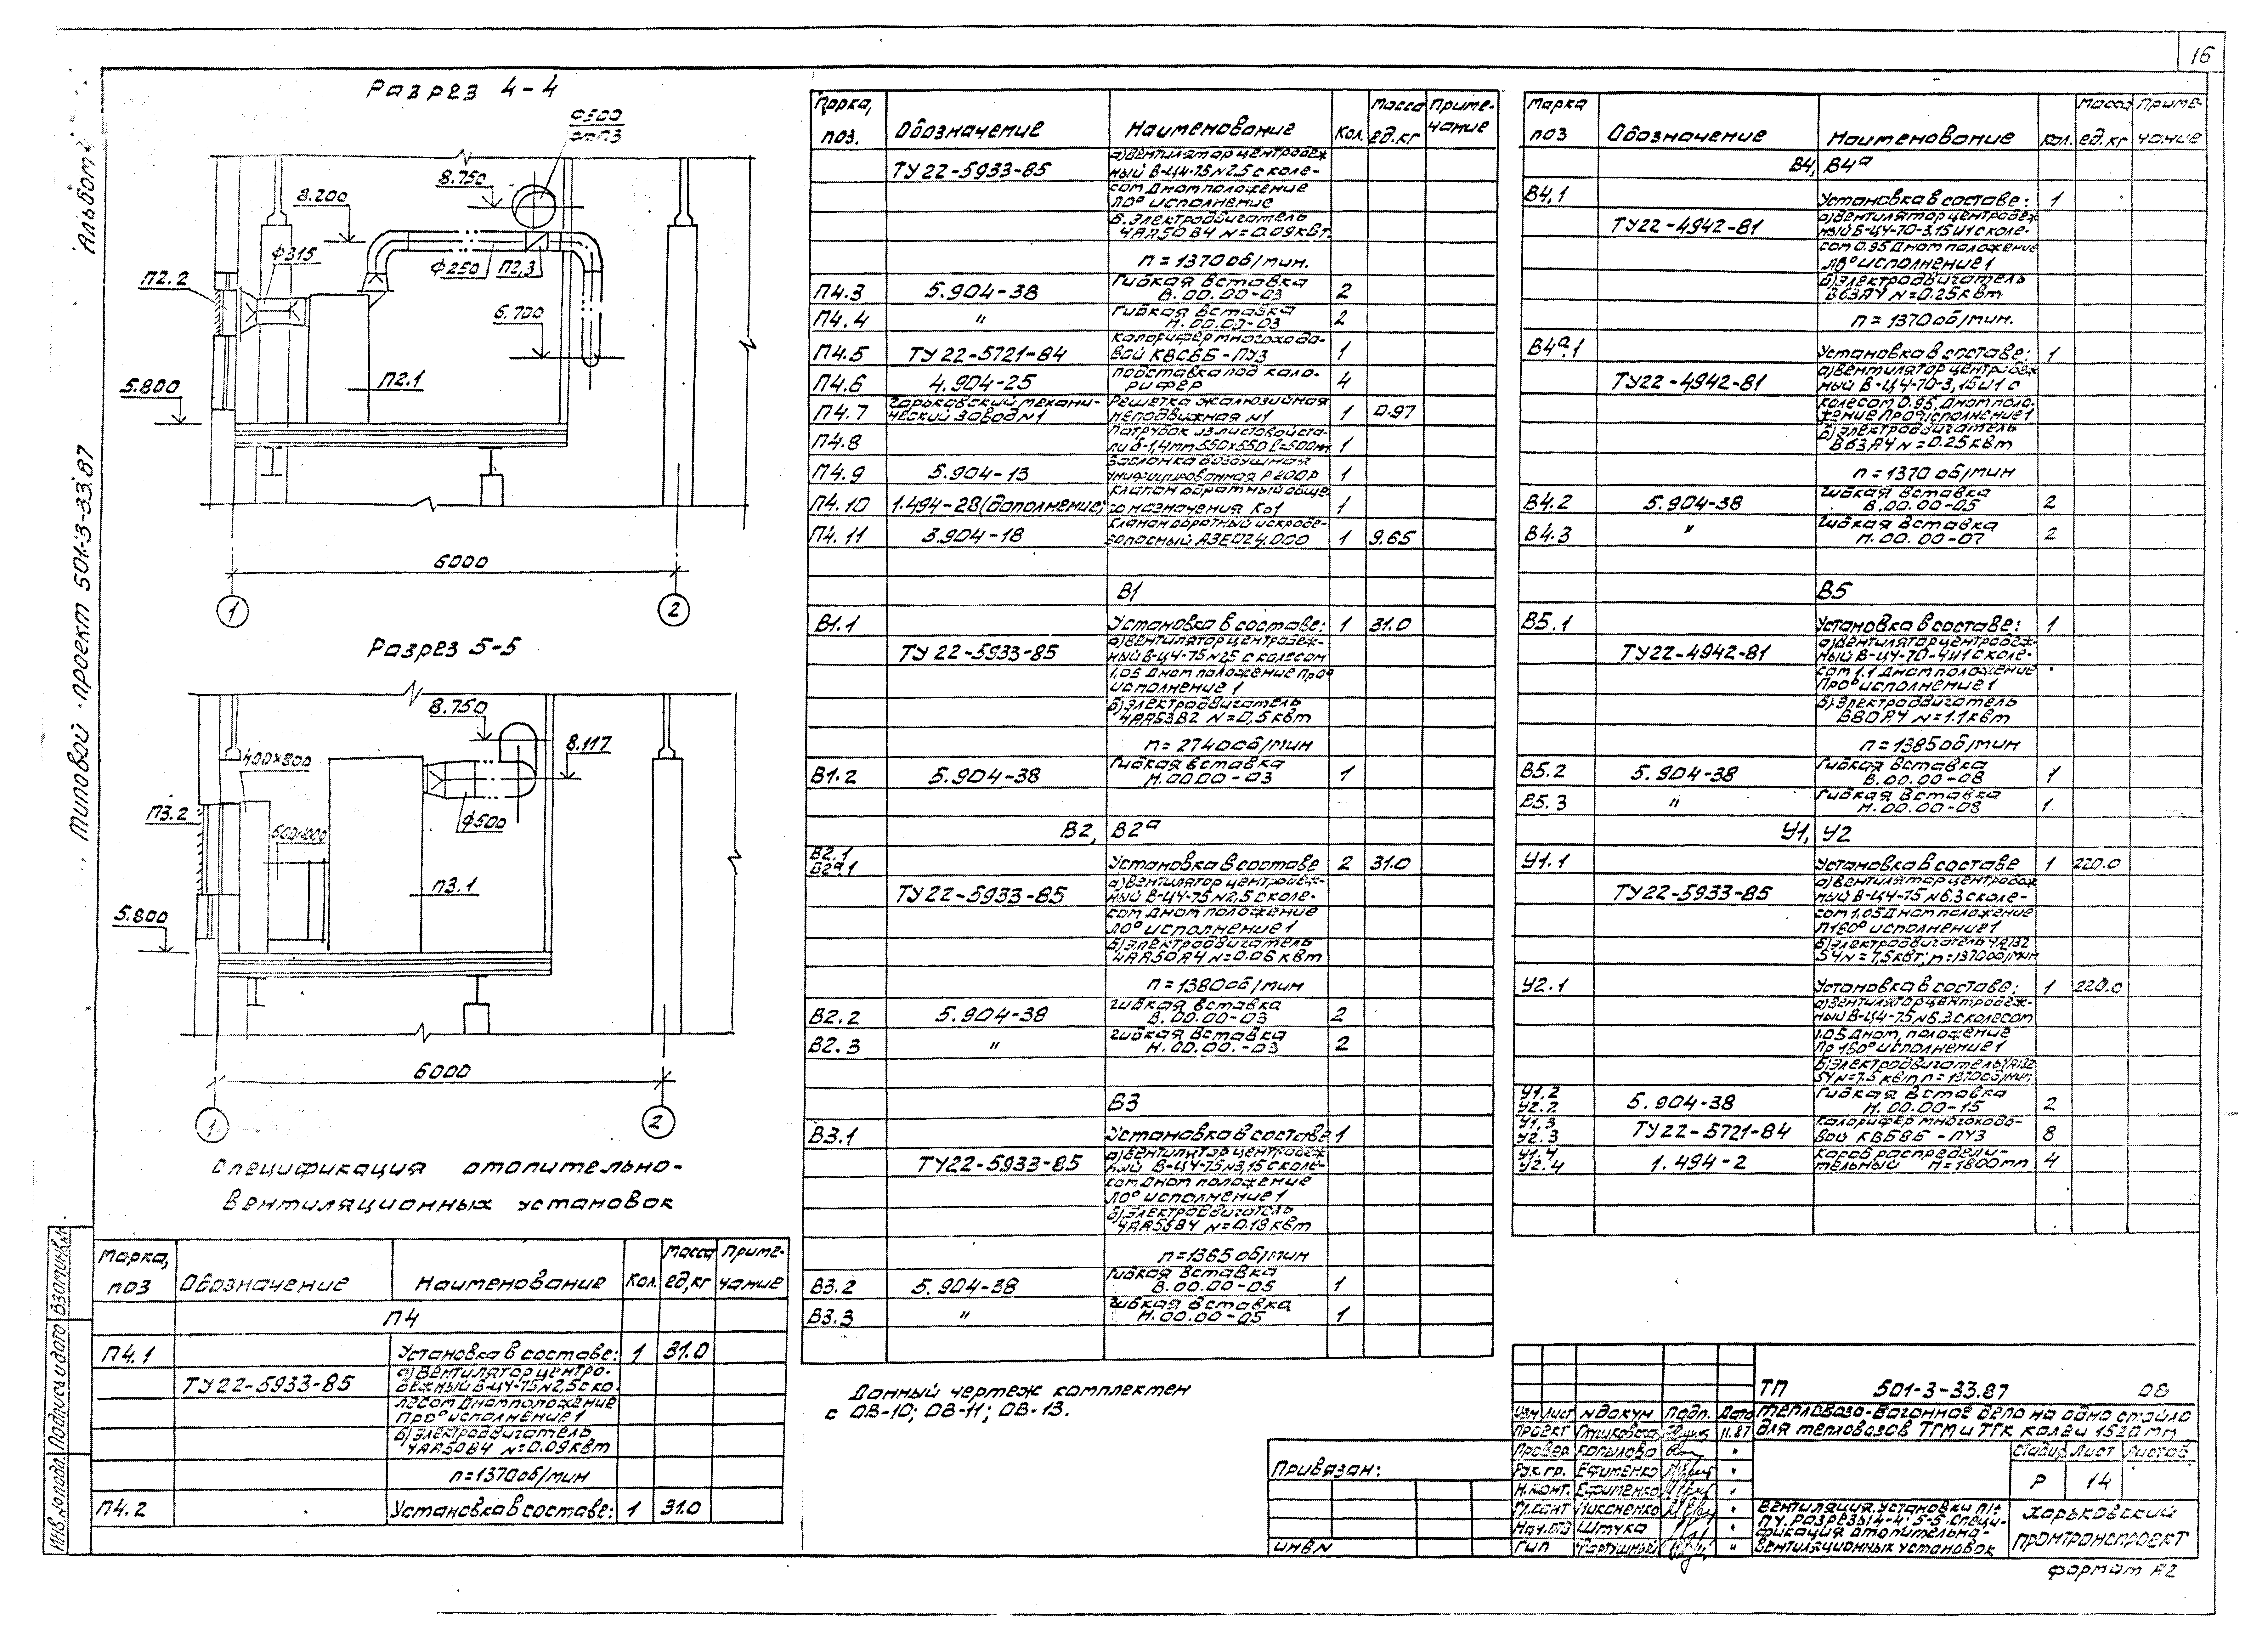 16
Альбом 2
Типовой проект 501-3-33.87
Разрез 4-4
Ф500
от П3
8.750
8.200
Ф315
П2.2
Ф250
П2.3
6.700
П2.1
5.800
6000
1
2
Разрез 5-5
8.750
8.117
400×800
П3.2
Ф500
П3.1
5.800
6000
1
2
Спецификация отопительно-
вентиляционных установок
Марка, поз
Обозначение
Наименование
Кол.
Масса ед, кг
Приме-чание
П4
П4.1 Установка в составе: 1 31.0
ТУ 22-5933-85 а) Вентилятор центро-
бежный В-Ц4-75 №2,5 с ко-
лесом Дном положение
Пр0° исполнение 1
б) Электродвигатель
4АА50В4 N=0.09 кВт
n=1370 об/мин
П4.2 Установка в составе: 1 31.0
Марка, поз.
Обозначение
Наименование
Кол.
Масса ед.кг
Приме-чание
ТУ 22-5933-85 а) Вентилятор центробеж
ный В-Ц4-75 №2,5 с коле-
сом Дном положение
Л0° исполнение
б. Электродвигатель
4АА50В4 N=0.09 кВт.
n=1370 об/мин.
П4.3 5.904-38 Гибкая вставка
В.00.00-03 2
П4.4 " Гибкая вставка
Н.00.00-03 2
П4.5 ТУ 22-5721-84 Калорифер многоходо-
вой КВС6Б-ПУ3 1
П4.6 4.904-25 Подставка под кало-
рифер 4
П4.7 Харьковский механи-
ческий завод №1 Решетка жалюзийная
неподвижная №1 1 0.97
П4.8 Патрубок из листовой ста-
ли δ-1,4мм 550×550 ℓ=500мм 1
П4.9 5.904-13 Заслонка воздушная
унифицированная Р200Р 1
П4.10 1.494-28 (дополнение) Клапан обратный обще-
го назначения Ко1 1
П4.11 3.904-18 Клапан обратный искробе-
зопасный АЗЕ024.000 1 9.65
В1
В1.1 Установка в составе: 1 31.0
ТУ 22-5933-85 а) Вентилятор центробеж-
ный В-Ц4-75 №2,5 с колесом
1,05 Дном положение Пр0°
исполнение 1
б) Электродвигатель
4АА63В2 N=0,5 кВт
n=2740 об/мин
В1.2 5.904-38 Гибкая вставка
Н.00.00-03 1
В2, В2а
В2.1
В2а.1 Установка в составе 2 31.0
ТУ 22-5933-85 а) Вентилятор центробеж-
ный В-Ц4-75 №2,5 с коле-
сом Дном положение
Л0° исполнение 1
б) Электродвигатель
4АА50А4 N=0.06 кВт
n=1380 об/мин
В2.2 5.904-38 Гибкая вставка
В.00.00-03 2
В2.3 " Гибкая вставка
Н.00.00.-03 2
В3
В3.1 Установка в составе 1
ТУ 22-5933-85 а) Вентилятор центробеж
ный В-Ц4-75 №3,15 с коле-
сом Дном положение
Л0° исполнение 1
б) Электродвигатель
4АА56В4 N=0.18 кВт
n=1365 об/мин
В3.2 5.904-38 Гибкая вставка
В.00.00-05 1
В3.3 " Гибкая вставка
Н.00.00-05 1
Данный чертеж комплектен
с ОВ-10; ОВ-11; ОВ-13.
Марка поз
Обозначение
Наименование
Кол.
Масса ед.кг
Приме-чание
В4, В4а
В4.1 Установка в составе: 1
ТУ22-4942-81 а) Вентилятор центробеж
ный В-Ц4-70-3,15И1 с коле-
сом 0.95 Дном положение
Л0° исполнение 1
б) Электродвигатель
В63А4 N=0.25 кВт
n=1370 об/мин.
В4а.1 Установка в составе: 1
ТУ22-4942-81 а) Вентилятор центробеж
ный В-Ц4-70-3,15И1 с
колесом 0.95 Дном поло-
жение Пр0° исполнение 1
б) Электродвигатель
В63А4 N=0.25 кВт
n=1370 об/мин
В4.2 5.904-38 Гибкая вставка
В.00.00-05 2
В4.3 " Гибкая вставка
Н.00.00-07 2
В5
В5.1 Установка в составе: 1
ТУ22-4942-81 а) Вентилятор центробеж-
ный В-Ц4-70-4И1 с коле-
сом 1.1 Дном положение
Пр0° исполнение 1
б) Электродвигатель
В80А4 N=1.1 кВт
n=1385 об/мин
В5.2 5.904-38 Гибкая вставка
В.00.00-08 1
В5.3 " Гибкая вставка
Н.00.00-08 1
У1, У2
У1.1 Установка в составе 1 220.0
ТУ22-5933-85 а) Вентилятор центробеж
ный В-Ц4-75 №6,3 с коле-
сом 1,05 Дном положение
Л180° исполнение 1
б) Электродвигатель 4А132
S4 N=7,5 кВт; n=1370 об/мин
У2.1 Установка в составе: 1 220.0
а) Вентилятор центробеж-
ный В-Ц4-75 №6,3 с колесом
1.05 Дном, положение
Пр 180° исполнение 1
б) Электродвигатель 4А132
S4 N=7.5 кВт n=1370 об/мин
У1.2
У2.2 5.904-38 Гибкая вставка
Н.00.00-15 2
У1.3
У2.3 ТУ 22-5721-84 Калорифер многоходо-
вой КВБ8Б-ПУ3 8
У1.4
У2.4 1.494-2 Короб распредели-
тельный Н=1800мм 4
ТП 501-3-33.87 ОВ
Изм Лист № докум Подп. Дата
Тепловозо-вагонное депо на одно стойло
для тепловозов ТГМ и ТГК колеи 1520 мм
Проект Глушковская 11.87
Провер Копылова "
Рук.гр. Ефименко "
Н.конт. Ефименко "
Гл.конт Никоненко "
Нач.ОТЭ Штука "
ГИП "
Стадия Лист Листов
Р 14
Вентиляция. Установки П1÷
П4. Разрезы 4-4; 5-5. Специ-
фикация отопительно-
вентиляционных установок
Харьковский
Промтранспроект
Привязан:
Инв №
Формат А2
Инв.№ подл. Подпись и дата Взам.инв.№